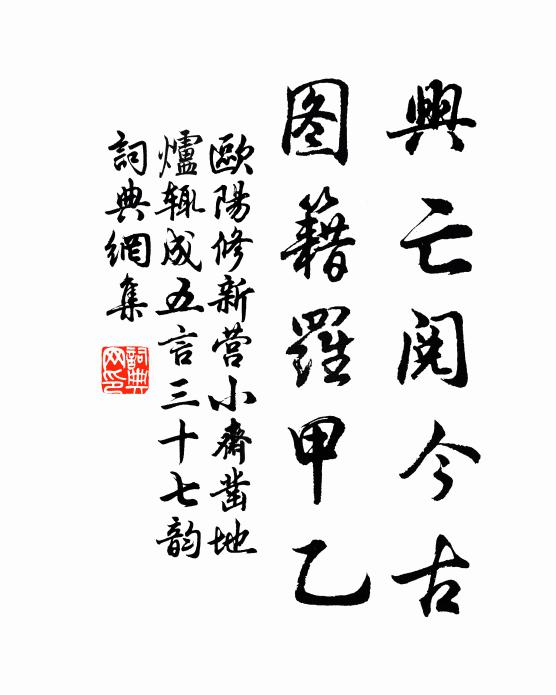 興亡閱今古
图籍羅甲乙
歐陽修新营小齋凿地
爐辄成五言三十七韵
詞典網集
詞典网印